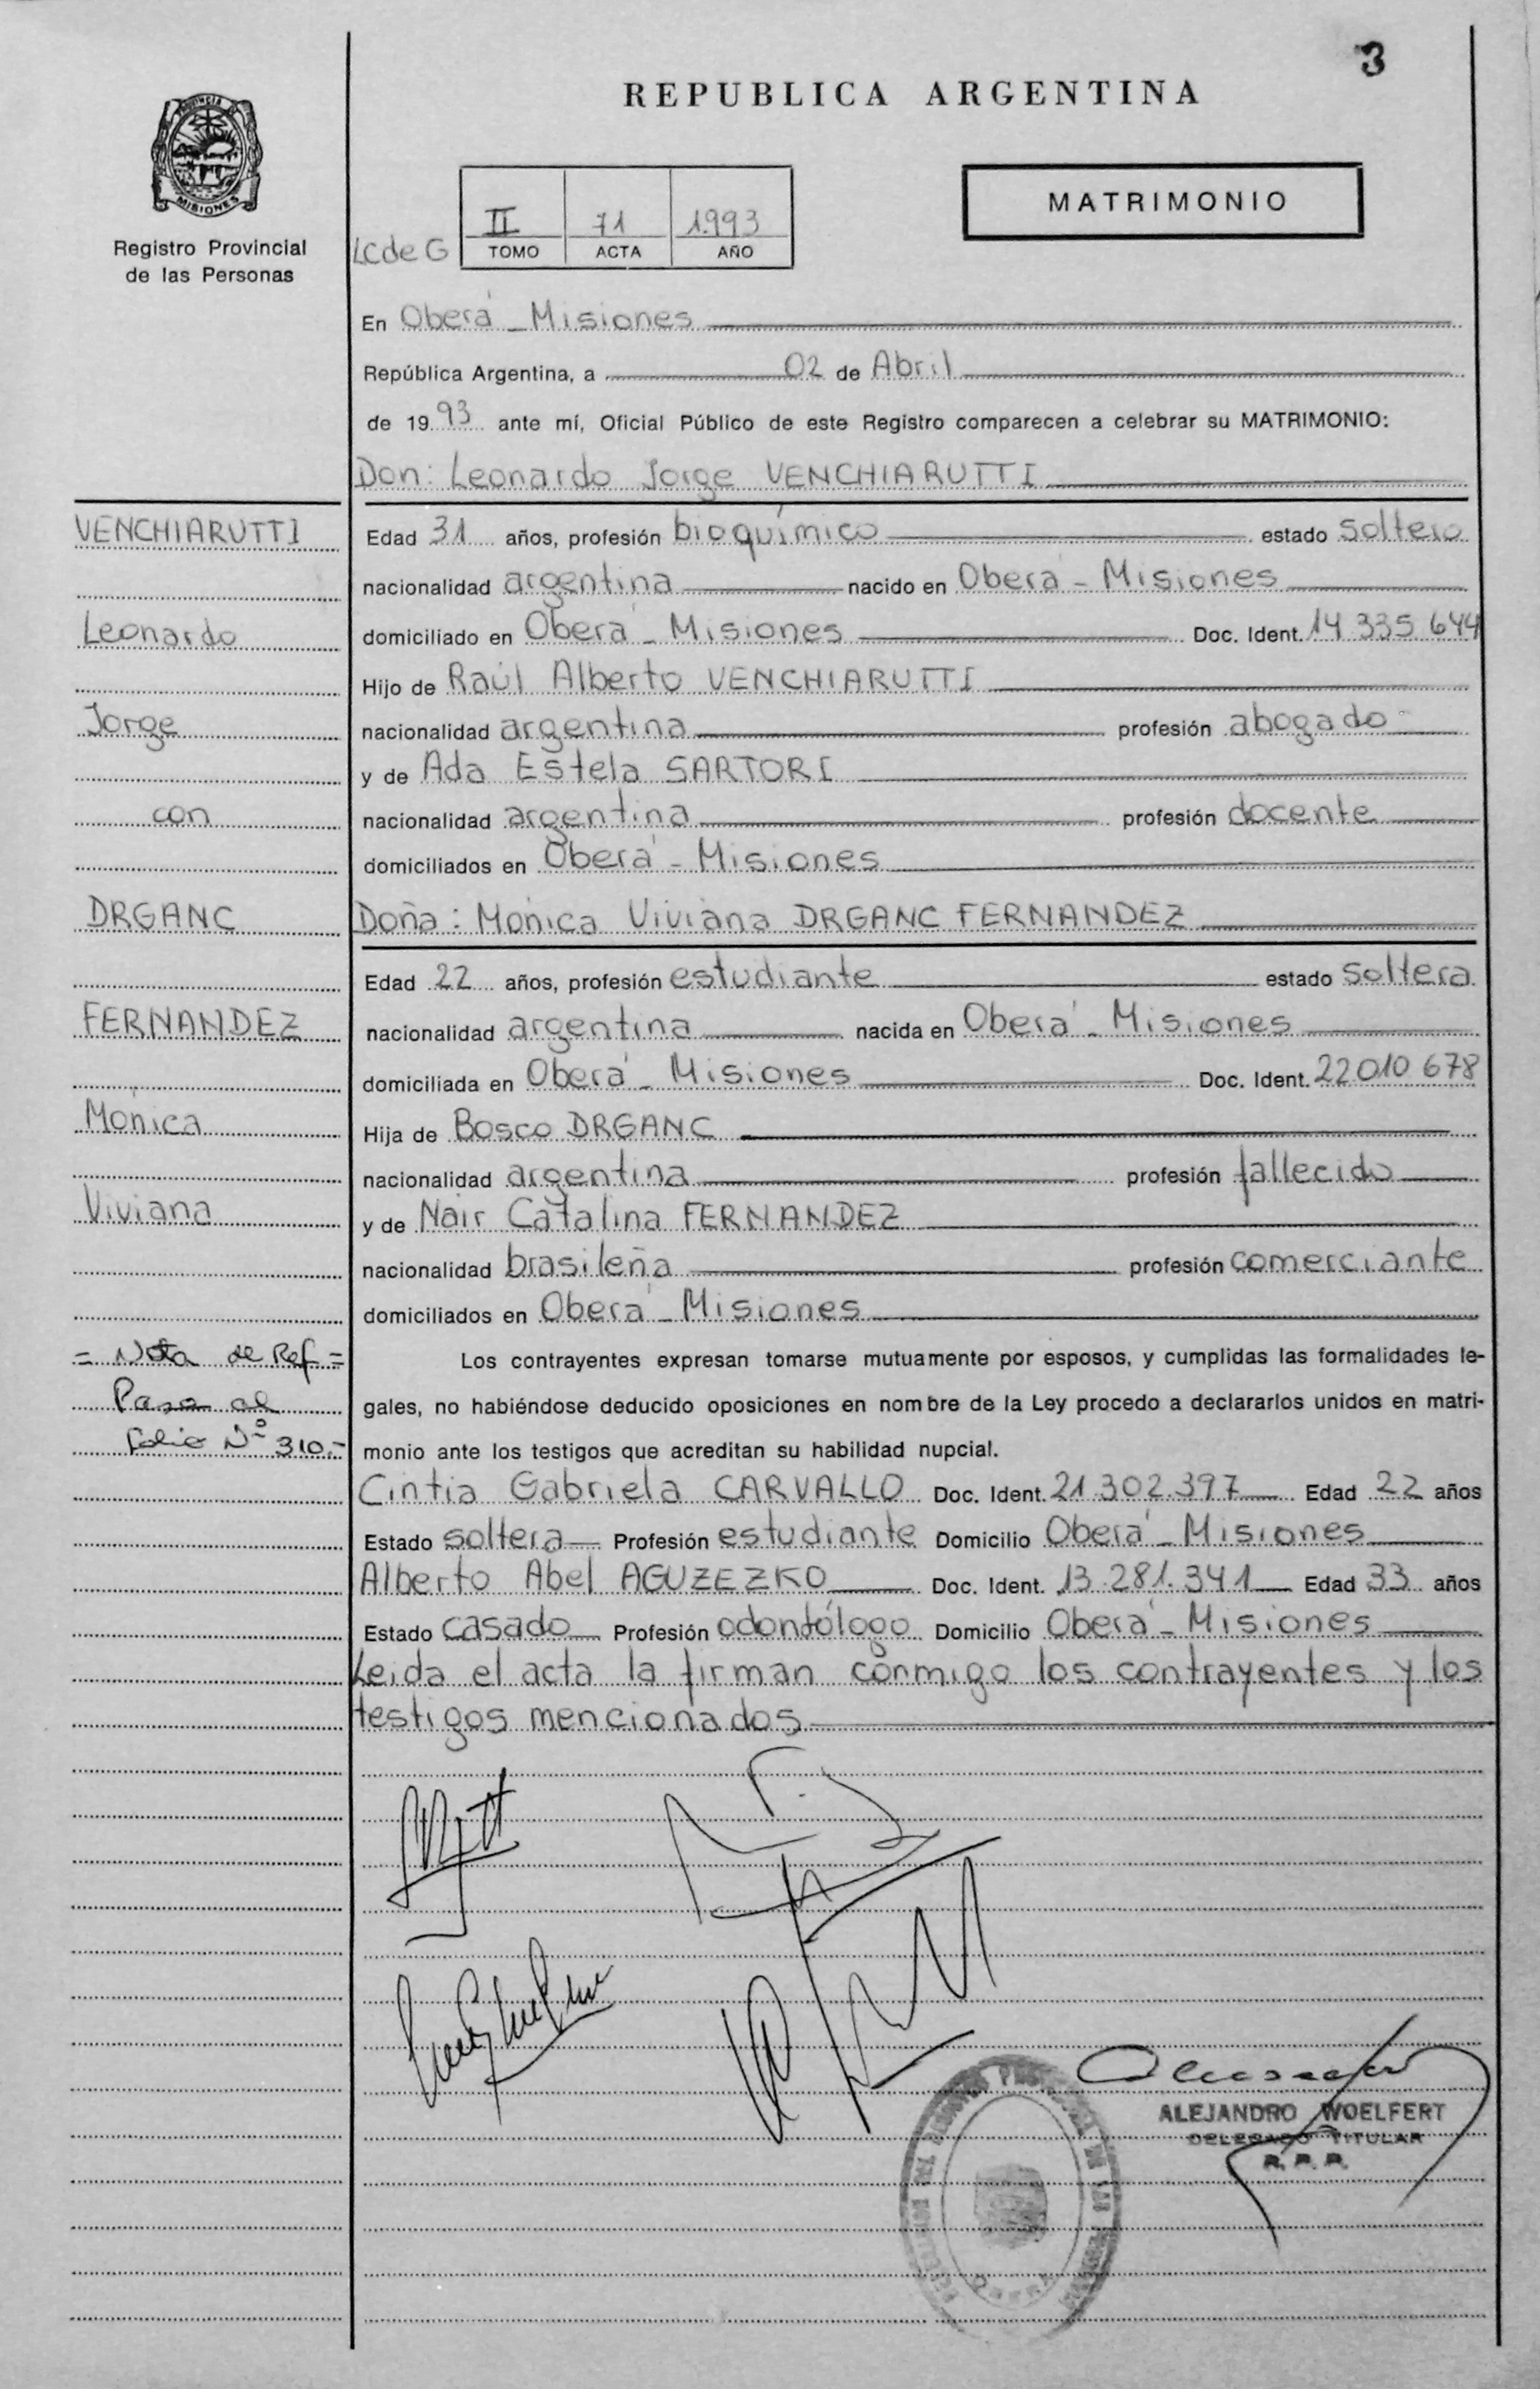 3
REPUBLICA ARGENTINA
PROVINCIA DE
MISIONES
Registro Provincial
de las Personas
MATRIMONIO
LC de G
II 71 1993
TOMO ACTA AÑO
En Oberá - Misiones
República Argentina, a 02 de Abril
de 1993 ante mí, Oficial Público de este Registro comparecen a celebrar su MATRIMONIO:
Don: Leonardo Jorge VENCHIARUTTI
VENCHIARUTTI
Leonardo
Jorge
con
DRGANC
FERNANDEZ
Mónica
Viviana
= Nota de Ref =
Pasa al
Folio Nº 310.-
Edad 31 años, profesión bioquímico estado soltero
nacionalidad argentina nacido en Oberá - Misiones
domiciliado en Oberá - Misiones Doc. Ident. 14 335 644
Hijo de Raúl Alberto VENCHIARUTTI
nacionalidad argentina profesión abogado
y de Ada Estela SARTORI
nacionalidad argentina profesión docente
domiciliados en Oberá - Misiones
Doña: Mónica Viviana DRGANC FERNANDEZ
Edad 22 años, profesión estudiante estado soltera
nacionalidad argentina nacida en Oberá - Misiones
domiciliada en Oberá - Misiones Doc. Ident. 22 010 678
Hija de Bosco DRGANC
nacionalidad argentina profesión fallecido
y de Nair Catalina FERNANDEZ
nacionalidad brasileña profesión comerciante
domiciliados en Oberá - Misiones
Los contrayentes expresan tomarse mutuamente por esposos, y cumplidas las formalidades le-
gales, no habiéndose deducido oposiciones en nombre de la Ley procedo a declararlos unidos en matri-
monio ante los testigos que acreditan su habilidad nupcial.
Cintia Gabriela CARVALLO Doc. Ident. 21.302.397 Edad 22 años
Estado soltera Profesión estudiante Domicilio Oberá - Misiones
Alberto Abel AGUZEZKO Doc. Ident. 13.281.341 Edad 33 años
Estado casado Profesión odontólogo Domicilio Oberá - Misiones
Leida el acta la firman conmigo los contrayentes y los
testigos mencionados
ALEJANDRO WOELFERT
DELEGADO TITULAR
R. P. P.
OBERA